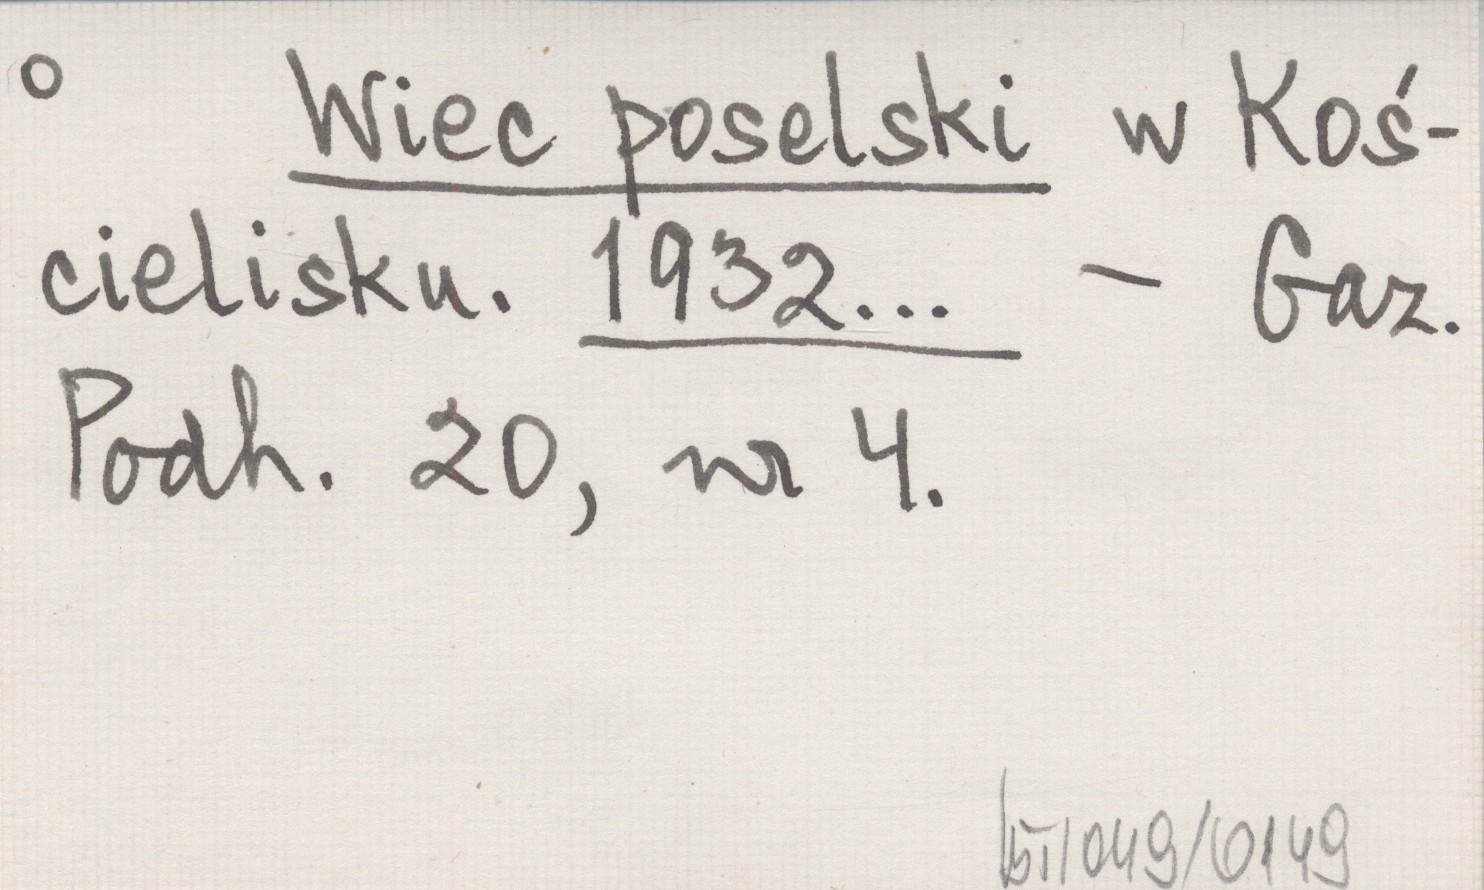 o Wiec poselski w Koś-
cielisku. 1932... - Gaz.
Podh. 20, nr 4.
049/0149